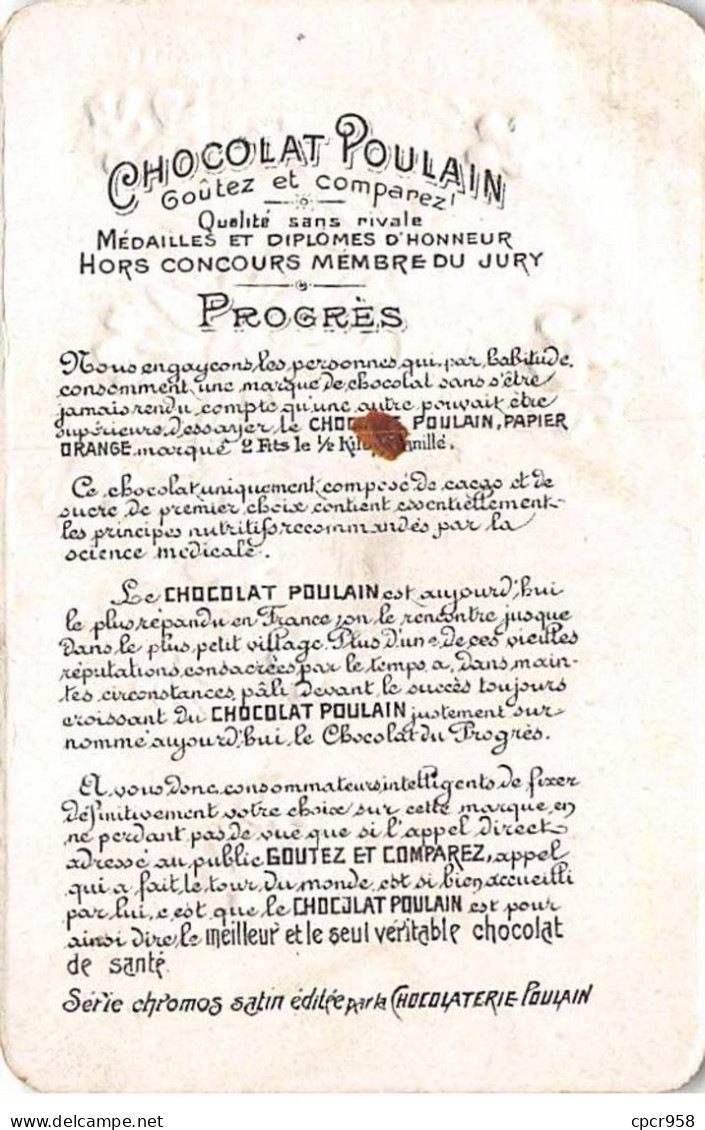 CHOCOLAT POULAIN
Goûtez et comparez!
Qualité sans rivale
MÉDAILLES ET DIPLOMES D'HONNEUR
HORS CONCOURS MEMBRE DU JURY
PROGRÈS
Nous engageons les personnes qui, par habitude,
consomment une marque de chocolat sans s'être
jamais rendu compte qu'une autre pouvait être
supérieure, d'essayer le POULAIN, PAPIER
ORANGE marqué 2 Fıts le ½ Kilo
Ce chocolat uniquement composé de cacao et de
sucre de premier choix contient essentiellement
les principes nutritifs recommandés par la
science médicale.
Le CHOCOLAT POULAIN est aujourd'hui
le plus répandu en France; on le rencontre jusque
dans le plus petit village. Plus d'une de ces vieilles
réputations consacrées par le temps a, dans main-
tes circonstances, pâli devant le succès toujours
croissant du CHOCOLAT POULAIN justement sur-
nommé aujourd'hui, le Chocolat du Progrès.
A vous donc, consommateurs intelligents de fixer
définitivement votre choix sur cette marque, en
ne perdant pas de vue que si l'appel direct
adressé au public GOUTEZ ET COMPAREZ, appel
qui a fait le tour du monde, est si bien accueilli
par lui, c'est que le CHOCOLAT POULAIN est pour
ainsi dire, le meilleur et le seul véritable chocolat
de santé.
Série chromos satin éditée par la CHOCOLATERIE POULAIN
delcampe.net
cpcr958